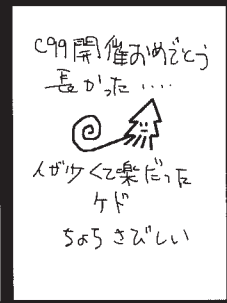 C99開催おめでとう
長かった....
人が少くて楽だった
ケド
ちょっとさびしい